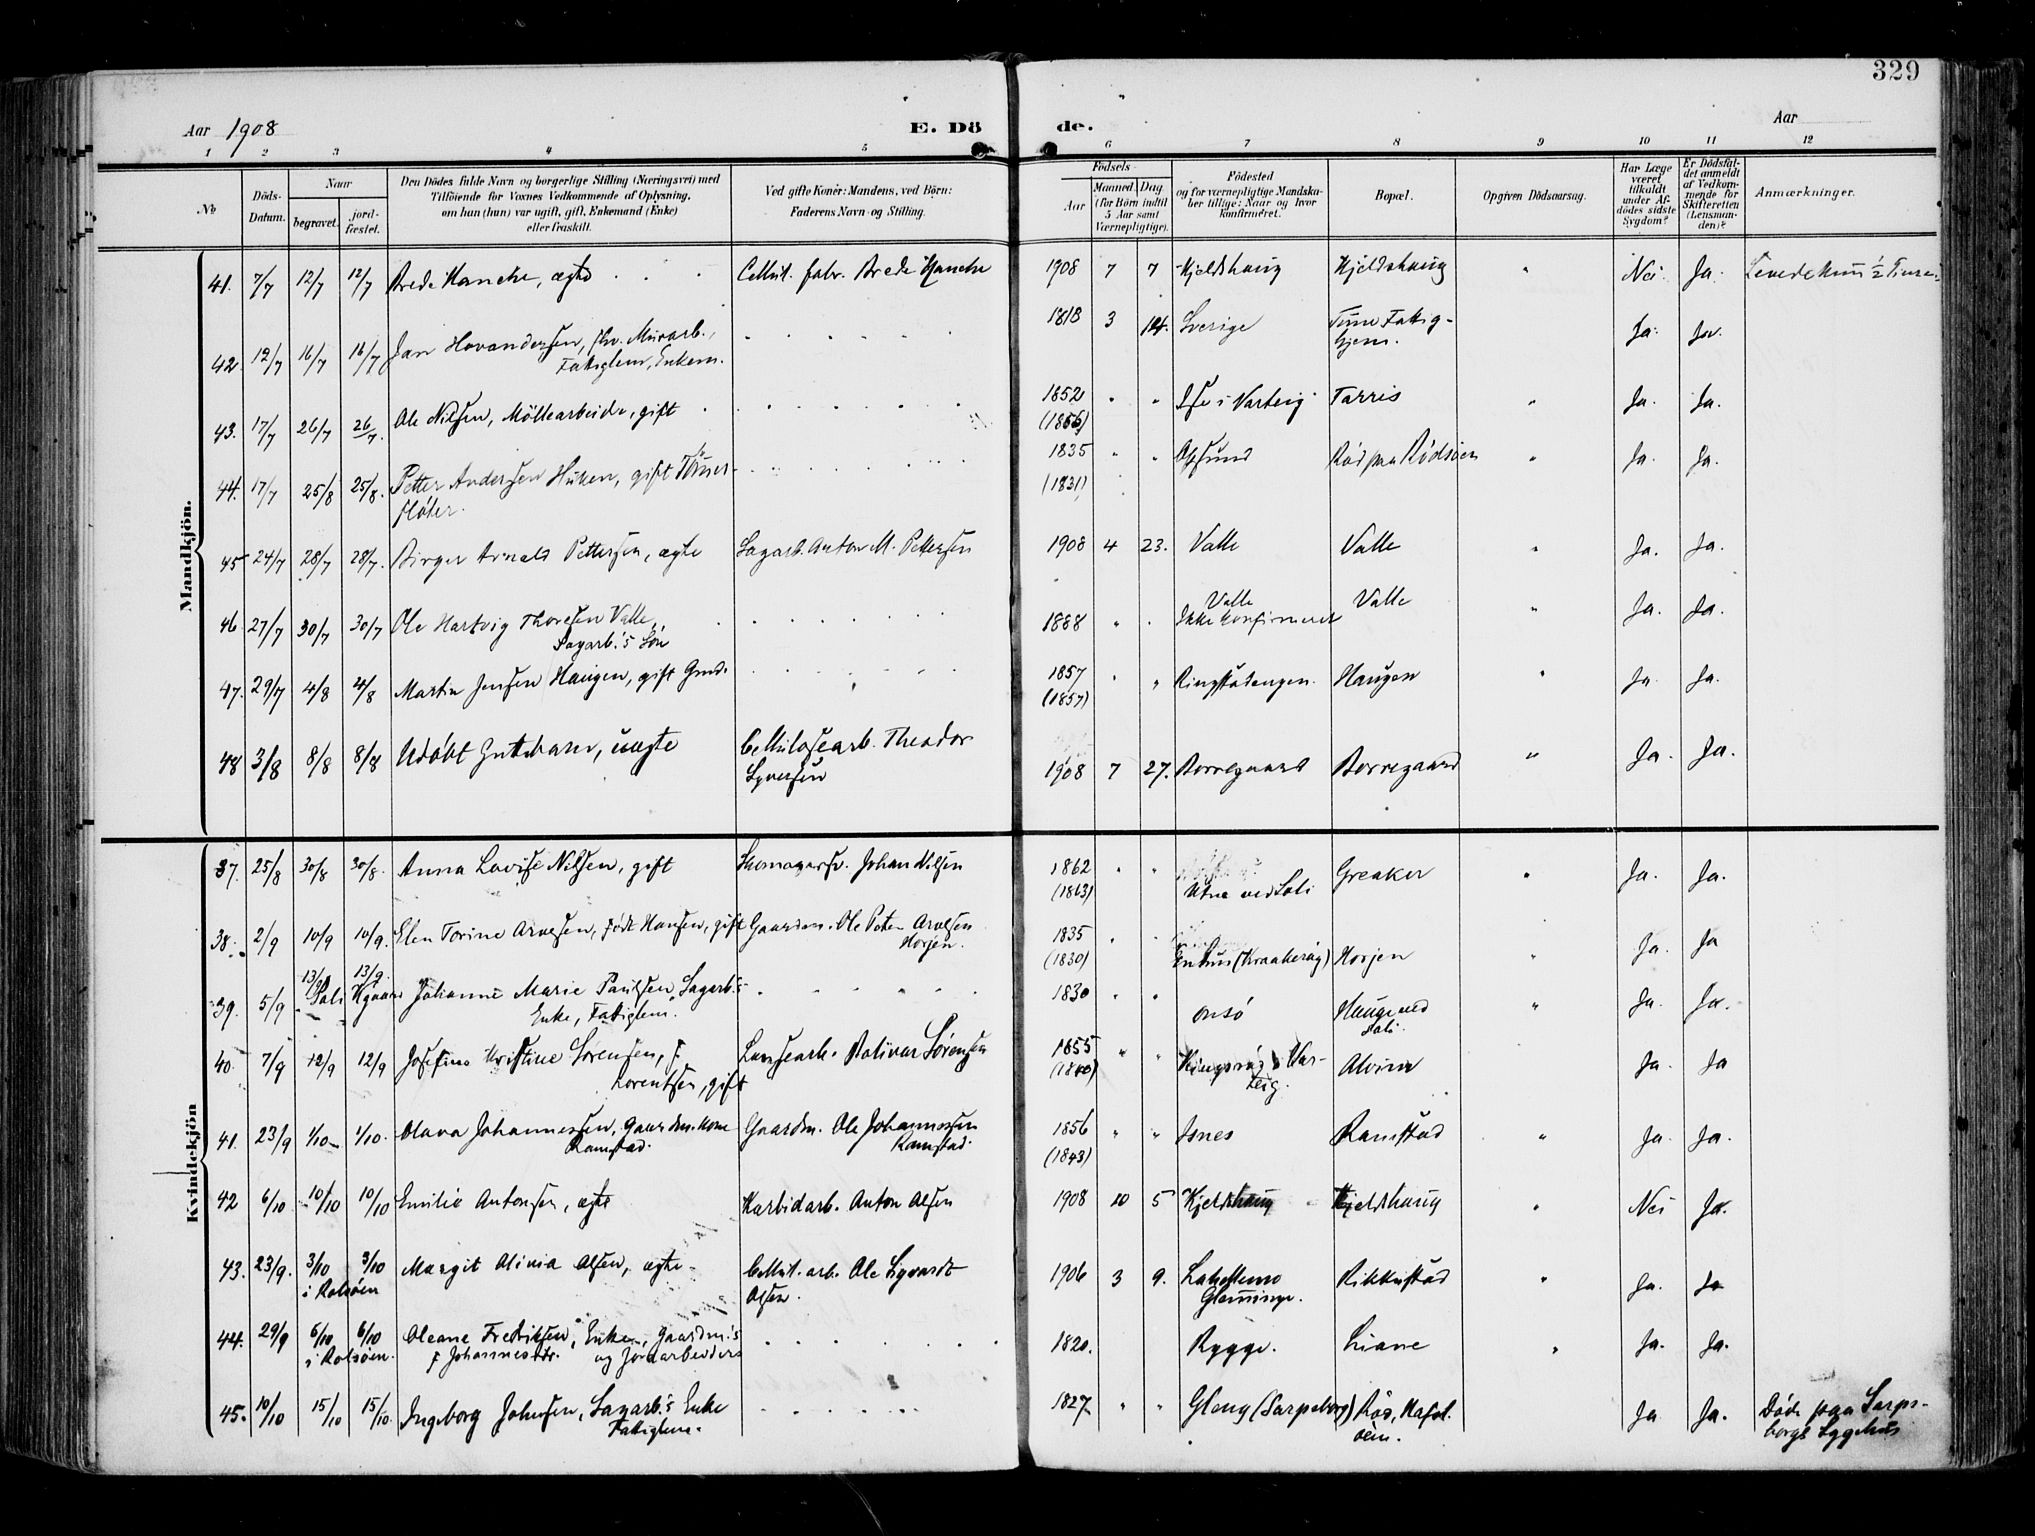 329
Aar 1908 E. Dö de. Aar
1 2 3 4 5 6 7 8 9 10 11 12
No Döds-Datum. Naar begravet. jord-fæstet. Den Dödes fulde Navn og borgerlige Stilling (Næringsvei) med Tilföiende for Voxnes Vedkommende af Oplysning, om han (hun) var ugift, gift, Enkemand (Enke) eller fraskilt. Ved gifte Koner: Mandens, ved Börn: Faderens Navn og Stilling. Födsels Aar Maaned. Dag (for Börn indtil 5 Aar samt Værnepligtige). Födested og for værnepligtige Mandska-ber tillige: Naar og hvor konfirmeret. Bopæl. Opgiven Dödsaarsag. Har Læge været tilkaldt under Af-dödes sidste Sygdom? Er Dödsfal-det anmeldt af Vedkom-mende for Skifteretten (Lensman-den)? Anmærkninger.
Mandkjön.
41. 7/7 12/7 12/7 Brede Hancke, ægte Cellul. fabr. Brede Hancke 1908 7 7 Kjeldshaug Kjeldshaug " Nei Ja. Levede kun 1/2 Time
42. 12/7 16/7 16/7 Jan Hovandersen, fhv. Murarb., 1818 3 14. Sverige Tune Fattig- Ja. Ja.
Fattiglem, Enkem. hjem.
43. 17/7 26/7 26/7. Ole Nilsen, Möllearbeider, gift 1852 " " Ise i Varteig Tarris " Ja. Ja.
(1856)
44. 17/7 25/8 25/8. Petter Andersen Huken, gift Tömer- 1835 " " Rödsöen " Ja. Ja.
fløter. (1831)
45 24/7 28/7 28/7. Birger Arnold Pettersen, ægte Sagarb. Anton M. Pettersen 1908 4 23. Valle Valle " Ja. Ja.
46. 27/7 30/7 30/7 Ole Hartvig Thoresen Valle, 1888 " " Valle Valle " Ja. Ja.
Sagarb.'s Søn Ikke konfirmeret
47. 29/7 4/8 4/8 Martin Jensen Haugen, gift Grdr. 1857 " " Ringstadengen. Haugen " Ja. Ja.
(1857)
48 3/8 8/8 8/8 Udöbt Guttebarn, uægte Cellulosearb. Theodor 1908 7 27. Borregaard Borregaard " Ja. Ja.
Syversen
Kvindekjön
37. 25/8 30/8 30/8. Anna Lovise Nilsen, gift Skomagersv. Johan Nilsen 1862 " " Utne ved Soli Greaker " Ja. Ja.
(1863)
38. 2/9 10/9 10/9. Elen Torine Arvesen, født Hansen, gift Gaardm. Ole Peter Arvesen 1835 " " (Kraakeröy) Horjen " Ja. Ja
Horjen. (1830)
39. 5/9 13/9 Soli 13/9. Johanne Marie Paulsen, Sagarb.'s 1830 " " Onsö Hauge ved " Ja. Ja.
Enke, Fattiglem. Soli.
40. 7/9 12/9 12/9 Josefine Kristine Sørensen, f. Lensearb. Bolivar Sørensen 1855 " " Var- Alvim Ja. Ja
Lorentsen, gift (1860) teig.
41. 23/9 1/10 1/10. Olava Johannessen, Gaardm. kone Gaardm. Ole Johannessen 1856 " " Isnes Ramstad " Ja. Ja.
Ramstad. Ramstad. (1843)
42 6/10 10/10 10/10 Emilie Antonsen, ægte Karbidarb. Anton Olsen 1908 10 5 Kjeldshaug Kjeldshaug " Nei Ja.
43. 23/9. 3/10 3/10 Margit Olivia Olsen, ægte Cellul. arb. Ole Sigvardt 1906 3 9. Glemminge. Rikkestad " Ja. Ja
i Rolsöen Olsen.
44. 29/9 6/10 6/10 Oleane Fredriksen, Enke, Gaardm.'s 1820. Rygge. Liane " Ja. Ja.
i Rolsöen. f. Johannesdtr. og Jordarbeiders
45. 10/10 15/10 15/10. Ingeborg Johnsen, Sagarb.'s Enke 1827 " " Gleng (Sarpsborg) Røs, Hafsl. Ja Ja. Døde paa Sarps-
Fattiglem. öen. borgs Sygehus